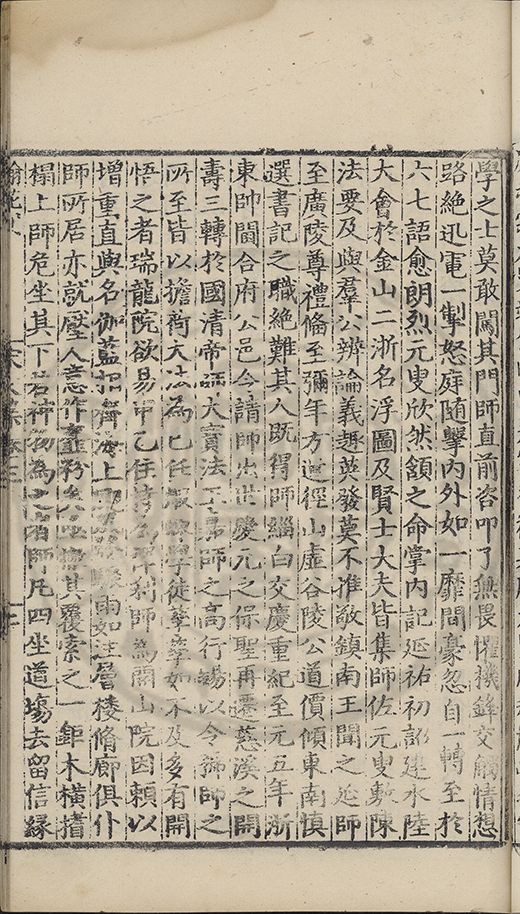 學之士莫敢闖其門師直前咨叩了無畏懼機鋒交觸情想
路絕迅電一掣怒庭隨擊內外如一靡間豪忽自一轉至於
六七語愈朗烈元叟欣然頷之命掌內記延祐初詔建水陸
大會於金山二浙名浮圖及賢士大夫皆集師佐元叟敷陳
法要及與羣公辨論義趣英發莫不推敬鎮南王聞之延師
至廣陵尊禮備至彌年方還徑山虛谷陵公道價傾東南慎
選書記之職絕難其人既得師緇白交慶重紀至元五年浙
東帥閫合府公邑令請師出世慶元之保聖再遷慈溪之開
壽三轉於國清帝師大寶法王嘉師之高行錫以令號師之
所至皆以擔荷大法為己任 學徒孳孳如不及多有開
悟之者瑞龍院欲易甲乙住持為 利師為開山院因賴以
增重直與名伽藍相 海上 雨如注層樓脩廊俱仆
師所居亦就壓人意作 其覆索之一鉅木橫搘
榻上師危坐其下若神物為之者師凡四坐道塲去留信緣